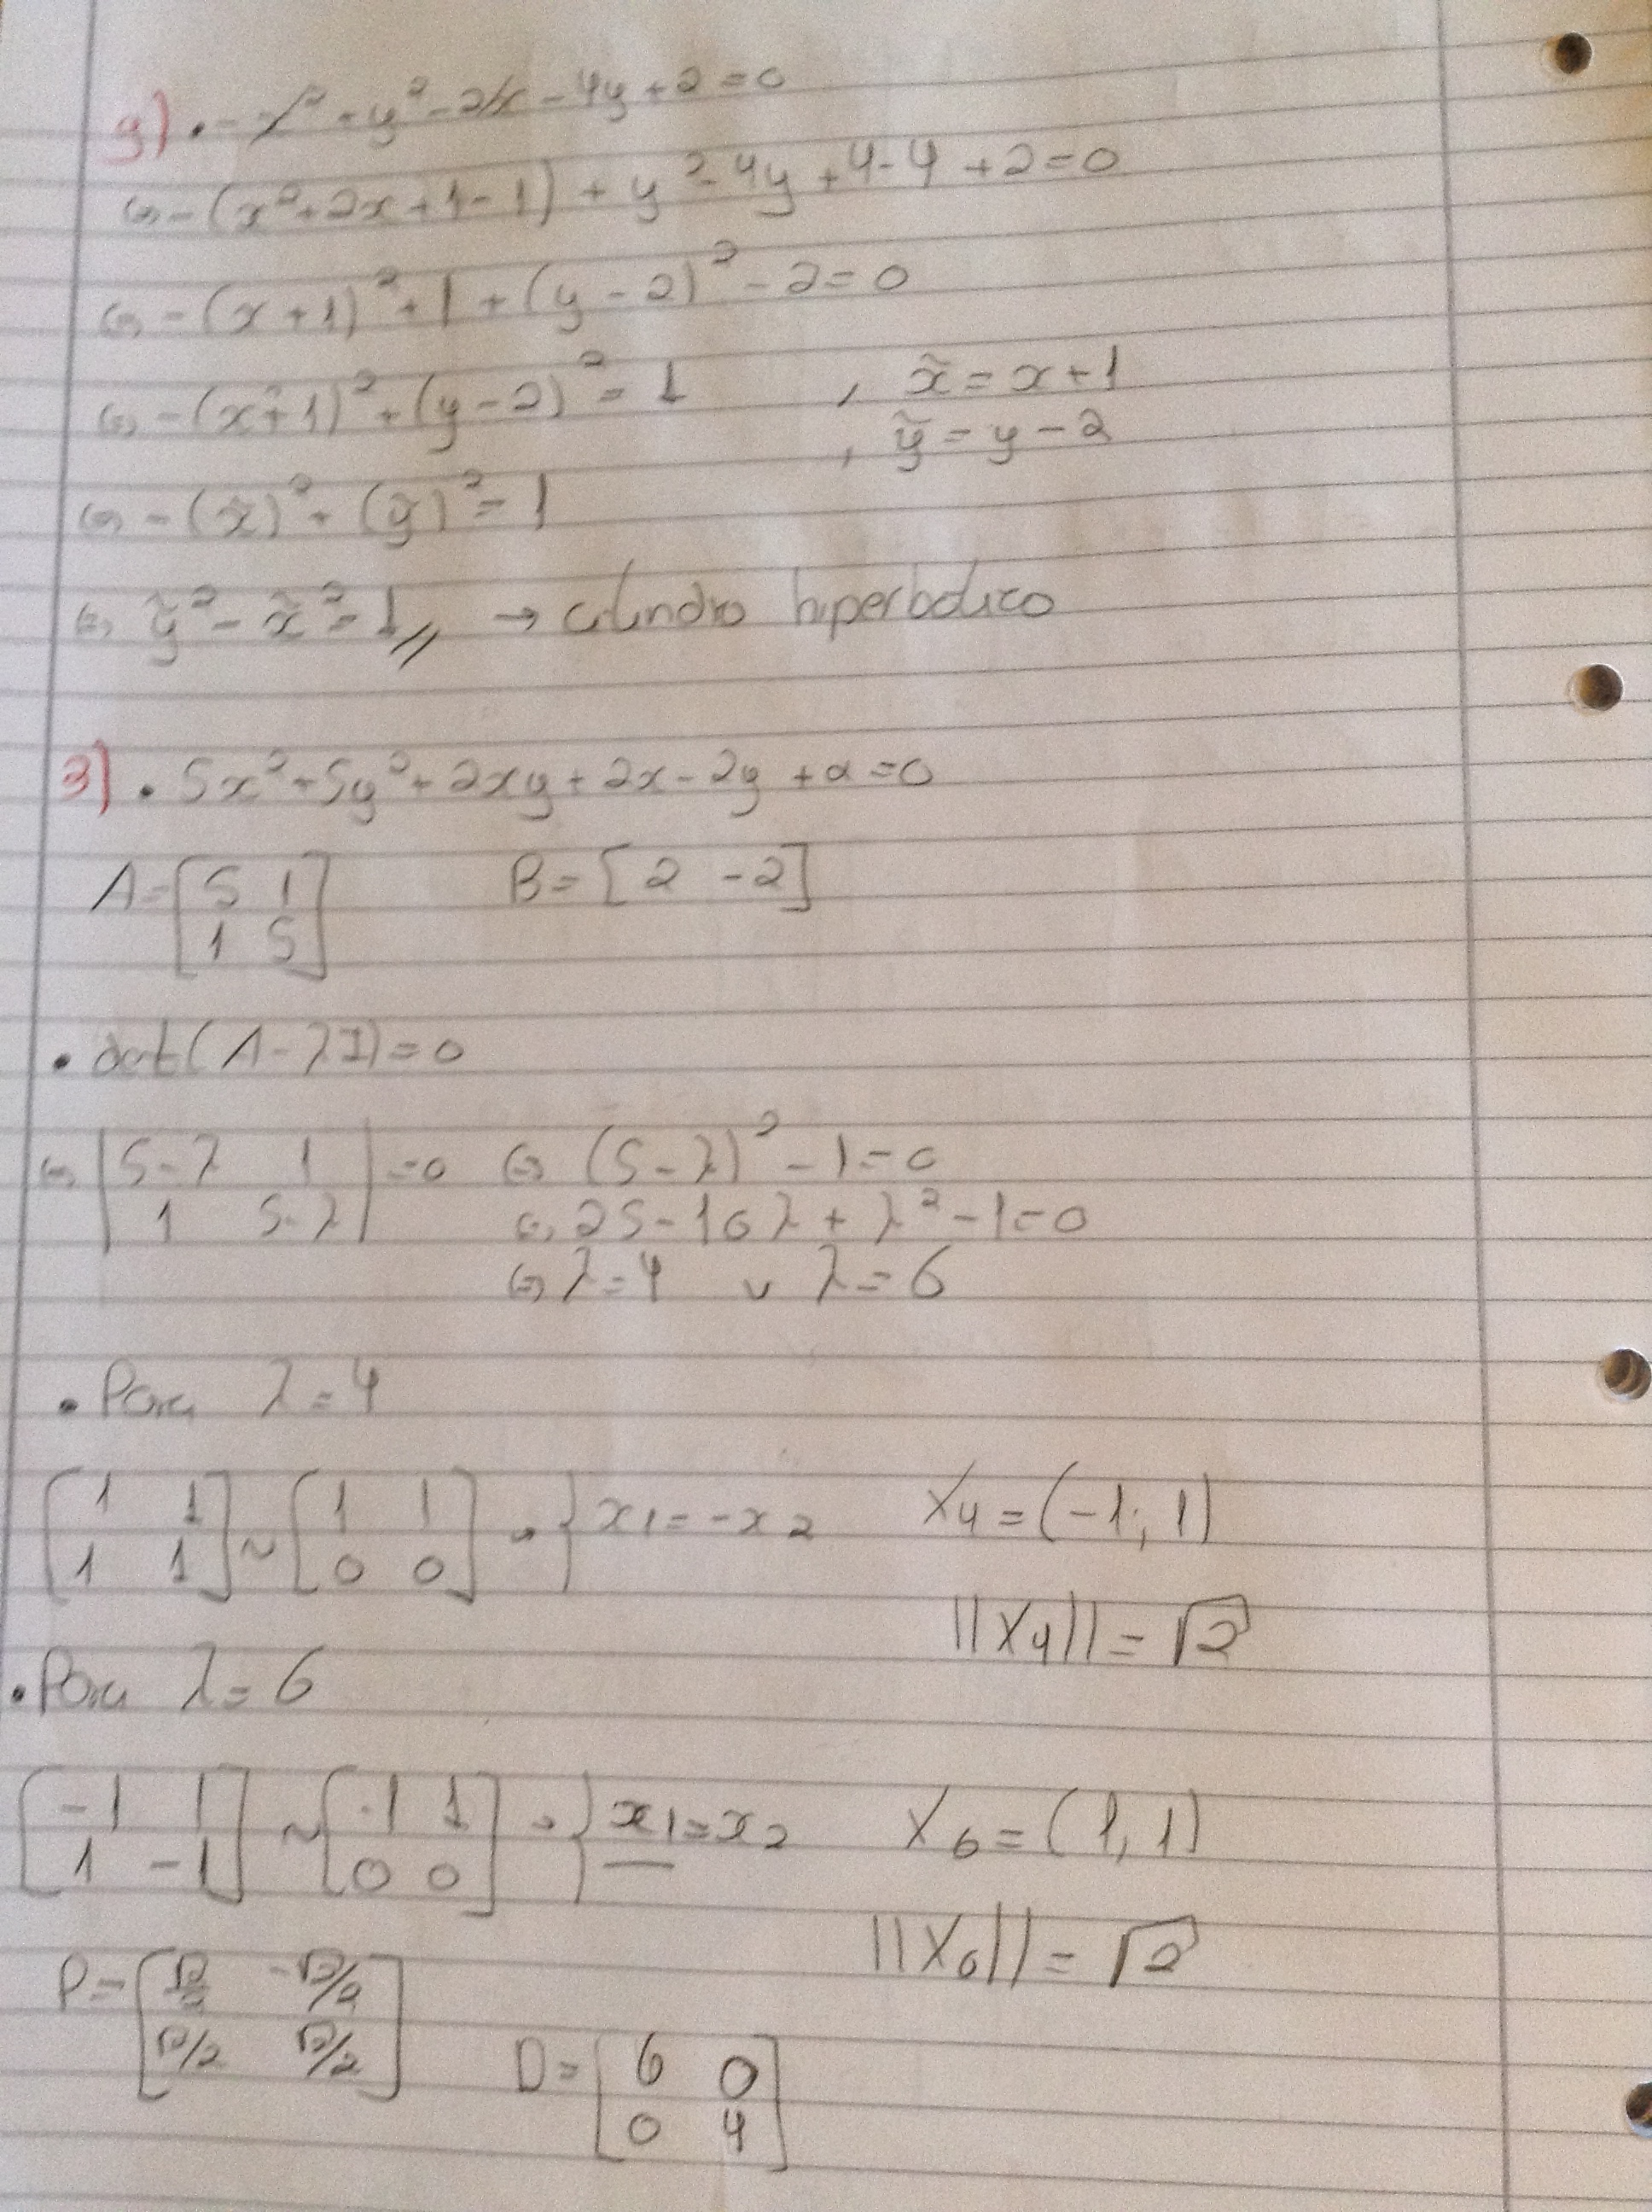 g) • -x² + y² - 2x - 4y + 2 = 0
(=) -(x² + 2x + 1 - 1) + y² - 4y + 4 - 4 + 2 = 0
(=) -(x + 1)² + 1 + (y - 2)² - 2 = 0
(=) -(x + 1)² + (y - 2)² = 1 , x̃ = x + 1
, ỹ = y - 2
(=) -(x̃)² + (ỹ)² = 1
(=) ỹ² - x̃² = 1 // → cilindro hiperbólico
3) • 5x² + 5y² + 2xy + 2x - 2y + α = 0
A = [5 1 B = [2 -2]
1 5]
• det(A - λI) = 0
(=) |5-λ 1| = 0 (=) (5 - λ)² - 1 = 0
|1 5-λ| (=) 25 - 10λ + λ² - 1 = 0
(=) λ = 4 ∨ λ = 6
• Para λ = 4
[1 1 ~ [1 1 → { x1 = -x2 X4 = (-1, 1)
1 1] 0 0]
||X4|| = √2
• Para λ = 6
[-1 1 ~ [-1 1 → { x1 = x2 X6 = (1, 1)
1 -1] 0 0] —
||X6|| = √2
P = [√2/2 -√2/2
√2/2 √2/2]
D = [6 0
0 4]